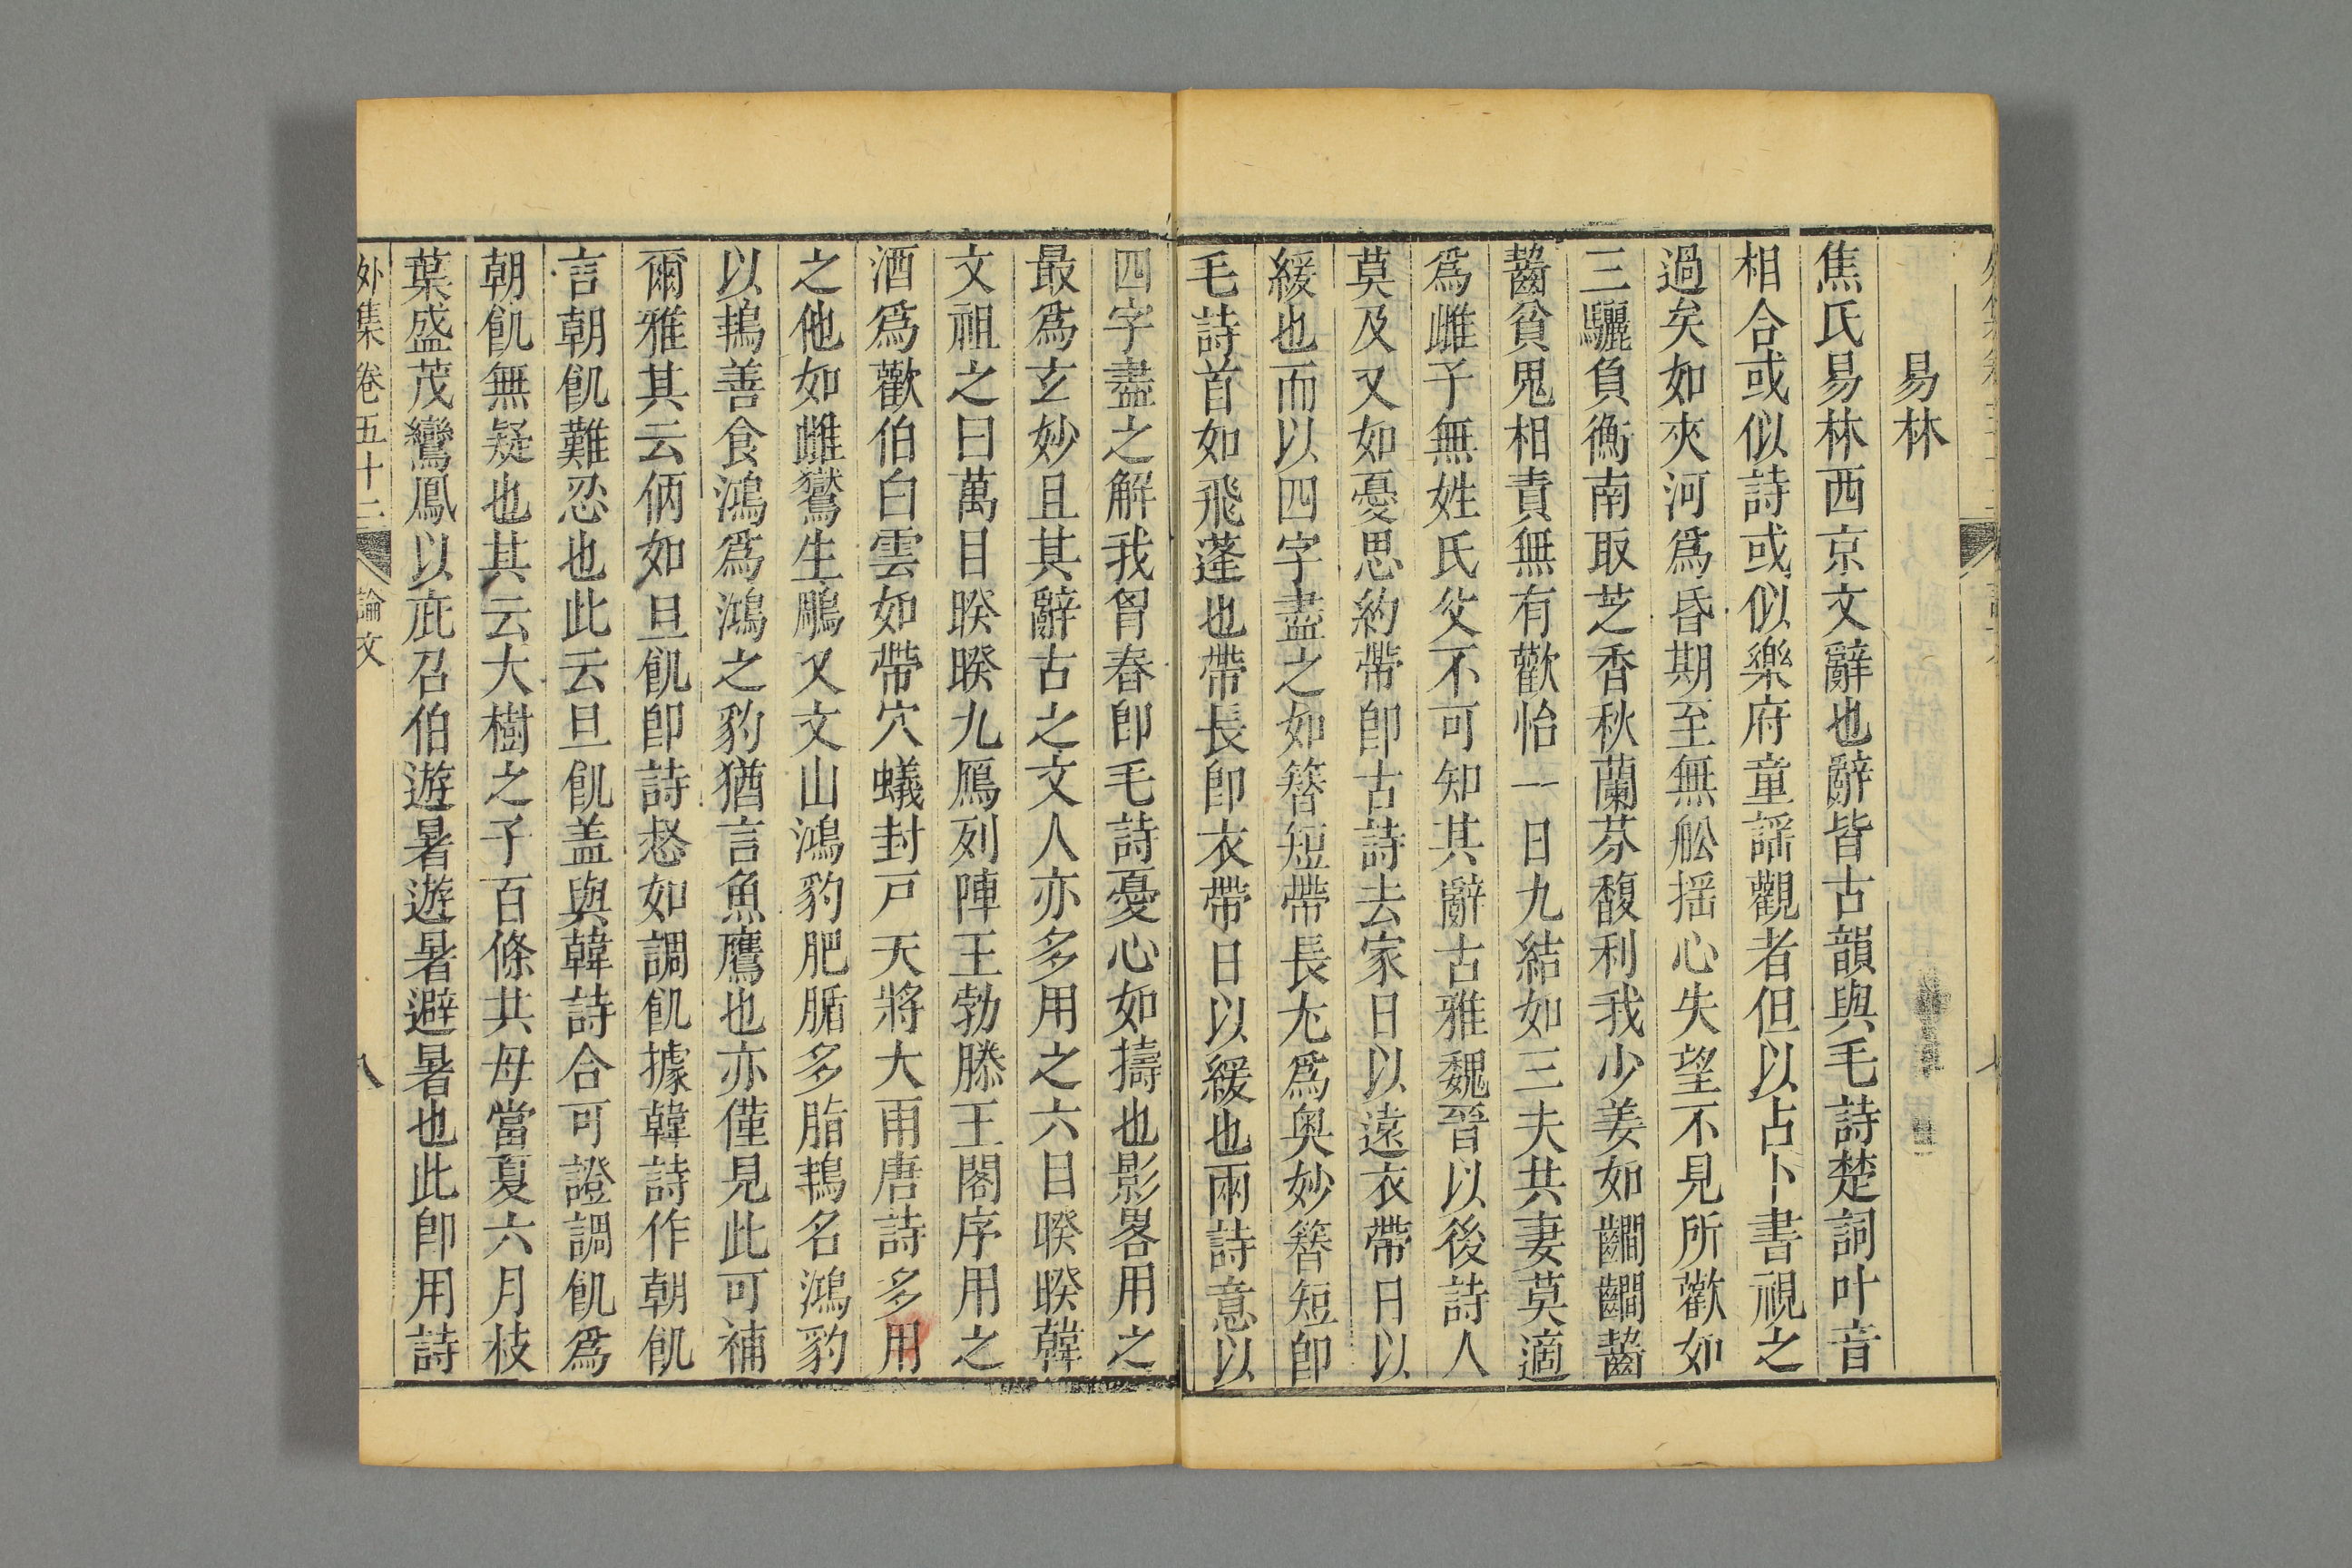 易林
焦氏易林西京文辭也辭皆古韻與毛詩楚詞叶音
相合或似詩或似樂府童謡觀者但以占卜書視之
過矣如夾河爲昏期至無舩揺心失望不見所歡如
三驪負衡南取芝香秋蘭芬馥利我少姜如齺齺齧
齧貧鬼相責無有歡怡一日九結如三夫共妻莫適
爲雌子無姓氏父不可知其辭古雅魏晉以後詩人
莫及又如憂思約帶卽古詩去家日以遠衣帶日以
緩也而以四字盡之如簪短帶長尤爲奥妙簪短卽
毛詩首如飛蓬也帶長卽衣帶日以緩也兩詩意以
四字盡之解我胷舂卽毛詩憂心如擣也影畧用之
最爲玄妙且其辭古之文人亦多用之六目睽睽韓
文祖之曰萬目睽睽九鴈列陣王勃滕王閣序用之
酒爲歡伯白雲如帶穴蟻封戸天將大雨唐詩多用
之他如雌鸑生鵰又文山鴻豹肥腯多脂鴇名鴻豹
以鴇善食鴻爲鴻之豹猶言魚鷹也亦僅見此可補
爾雅其云俩如旦飢卽詩惄如調飢據韓詩作朝飢
言朝飢難忍也此云旦飢盖與韓詩合可證調飢爲
朝飢無疑也其云大樹之子百條共母當夏六月枝
葉盛茂鸞鳳以庇召伯遊暑遊暑避暑也此卽用詩
外集 卷五十二 論文 八